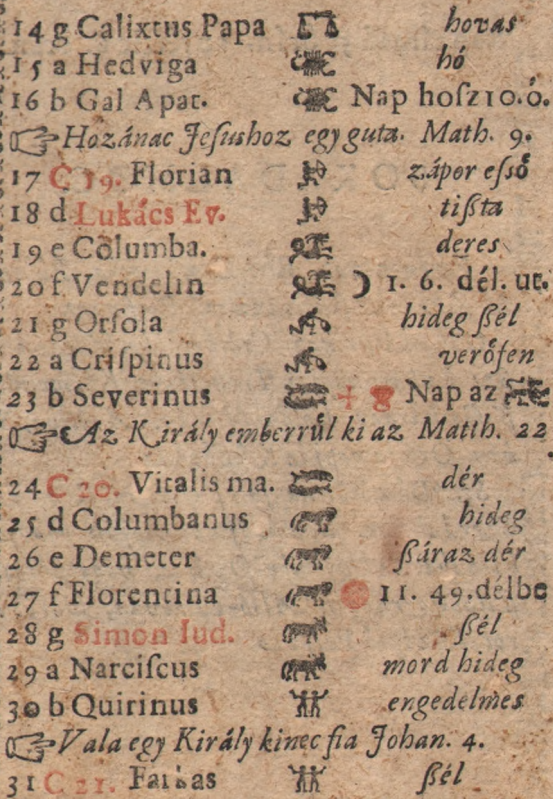 14 g Calixtus Papa hovas
15 a Hedviga hó
16 b Gal Apat. Nap hoſz 10. ó.
Hozánac Jeſushoz egy guta. Math. 9.
17 C 19. Florian zápor eſső
18 d Lukács Ev. tißta
19 e Columba. deres
20 f Vendelin ☽ 1. 6. dél. ut.
21 g Orſola hideg ßél
22 a Criſpinus verőfen
23 b Severinus Nap az
Az Király emberrűl ki az Matth. 22
24 C 20. Vitalis ma. dér
25 d Columbanus hideg
26 e Demeter ßáraz dér
27 f Florentina 11. 49. délbe
28 g Simon Iud. ßél
29 a Narciſcus mord hideg
30 b Quirinus engedelmes
Vala egy Király kinec fia Johan. 4.
31 C 21. Farkas ßél